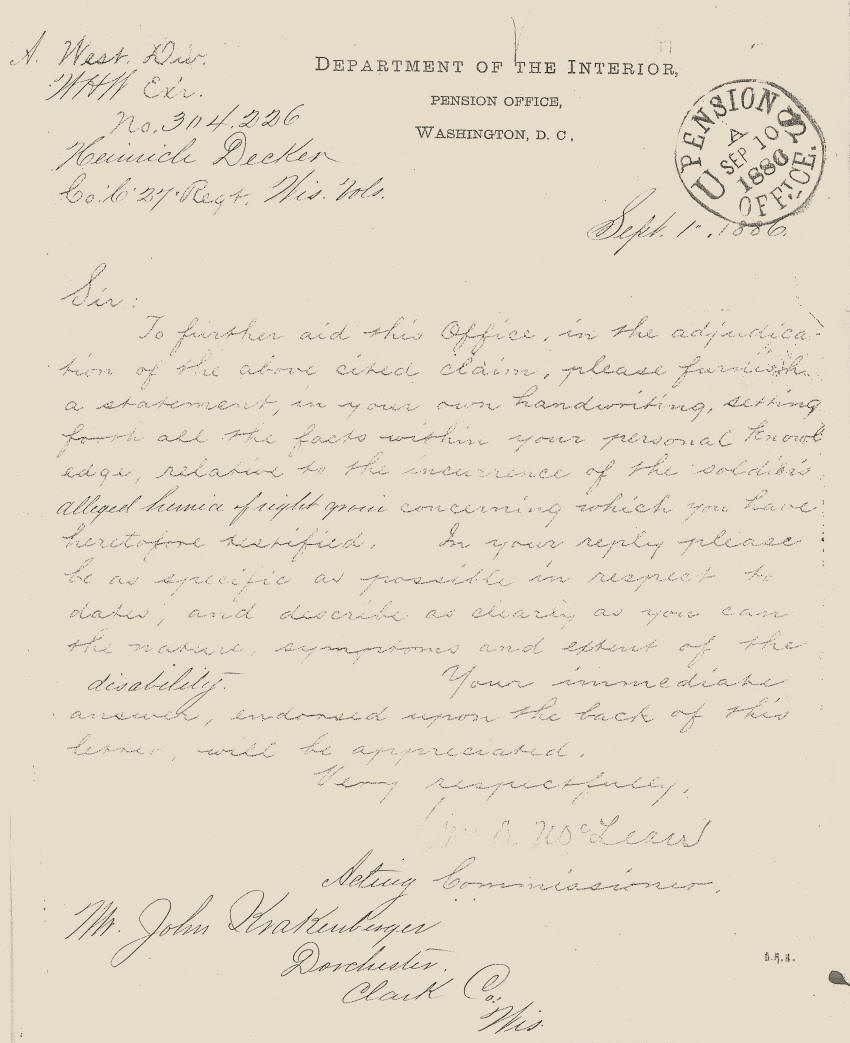 A. West. Div.
WHW Exr.
No. 304.226
Heinrich Decker
Co. C 27 Regt. Wis. Vols.
DEPARTMENT OF THE INTERIOR,
PENSION OFFICE,
WASHINGTON, D. C.,
U S PENSION OFFICE.
A
SEP 10
1886
Sept. 1886.
Sir:
To further aid this Office, in the adjudica-
tion of the above cited claim, please furnish
a statement, in your own handwriting, setting
forth all the facts within your personal knowl
edge, relative to the incurrence of the soldier's
alleged hernia of right groin concerning which you have
heretofore testified. In your reply please
be as specific as possible in respect to
dates, and describe as clearly as you can
the nature, symptoms and extent of the
disability. Your immediate
answer, endorsed upon the back of this
letter, will be appreciated.
Very respectfully,
McLean
Acting Commissioner.
Mr. John Krakenberger
Dorchester.
Clark Co.
Wis.